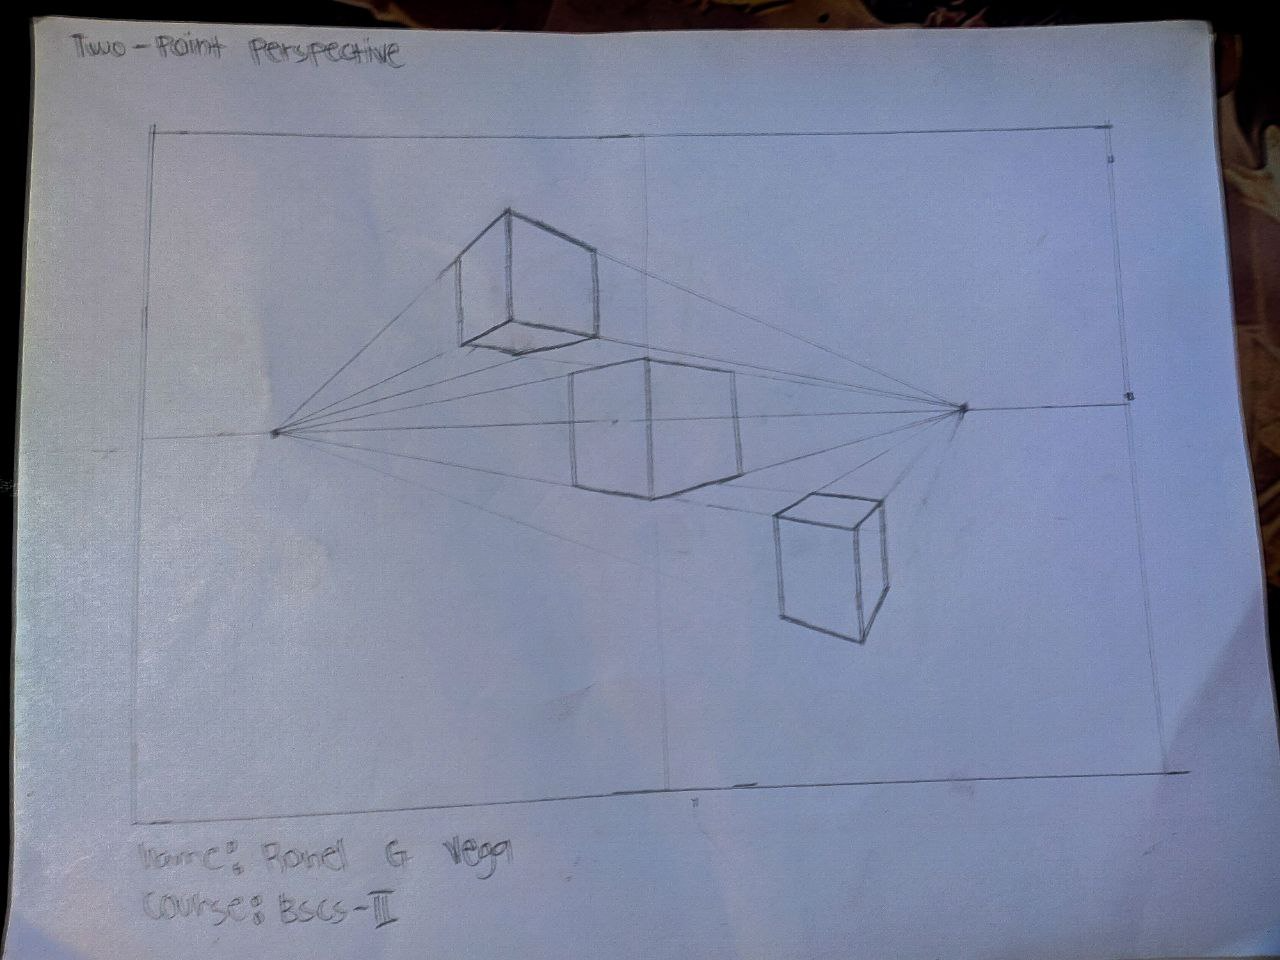 Two-Point Perspective
Name: Ronel G Vega
Course: BSCS-II